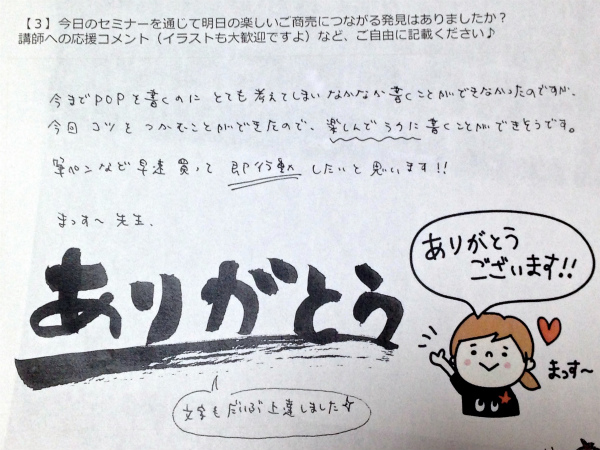 【３】今日のセミナーを通じて明日の楽しいご商売につながる発見はありましたか？
講師への応援コメント（イラストも大歓迎ですよ）など、ご自由に記載ください♪
今までPOPを書くのに とても考えてしまい なかなか書くことができなかったのですが、
今回 コツを つかむことができたので、楽しんで ラクに 書くことができそうです。
筆ペンなど 早速 買って 即行動 したいと思います!!
まっす〜 先生、
ありがとう
文字も だいぶ 上達しました☆
ありがとう
ございます!!
まっす〜